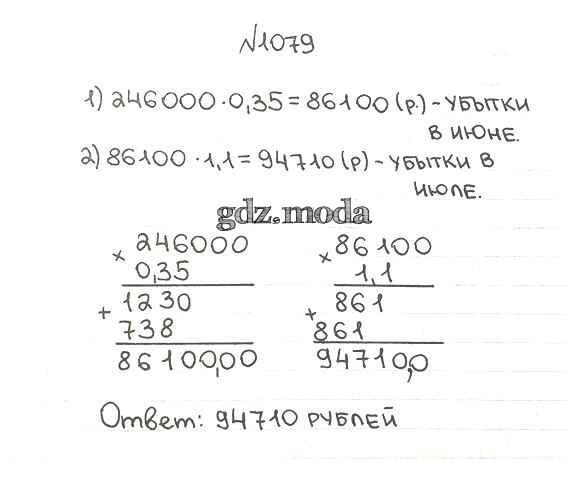 №1079
1) 246000·0,35=86100(р.)-убытки
в июне.
2) 86100·1,1=94710(р)-убытки в
июле.
gdz.moda
× 246000
0,35
+ 1230
738
86100,00
× 86100
1,1
+ 861
861
94710,0
Ответ: 94710 рублей